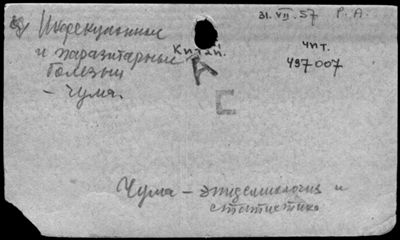 31.VII.57 Р.А.
Инфекционные
и паразитарные
болезни
- Чума.
Китай.
чит.
497007
А
С
Чума - эпидемиология и
статистика